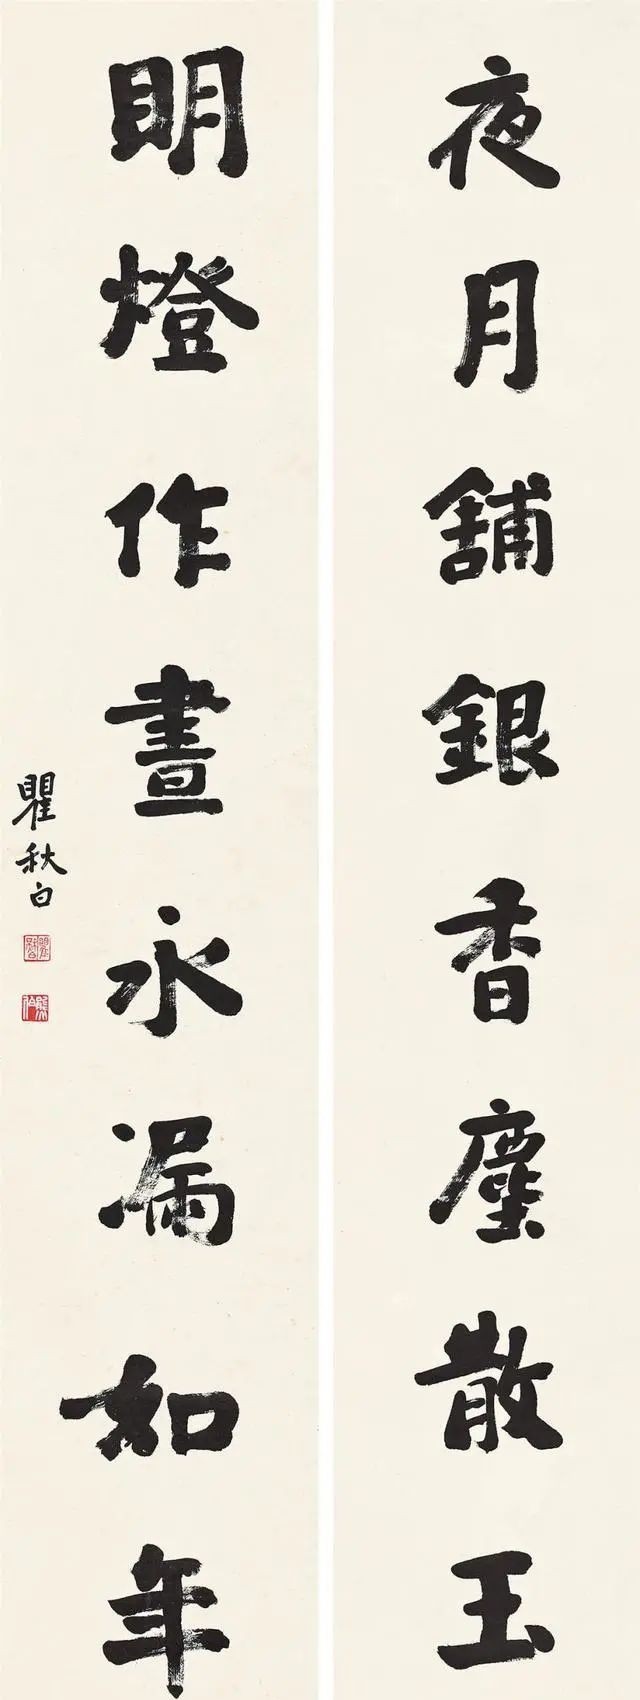 夜月舖銀香塵散玉
眀燈作晝永漏如年
瞿秋白